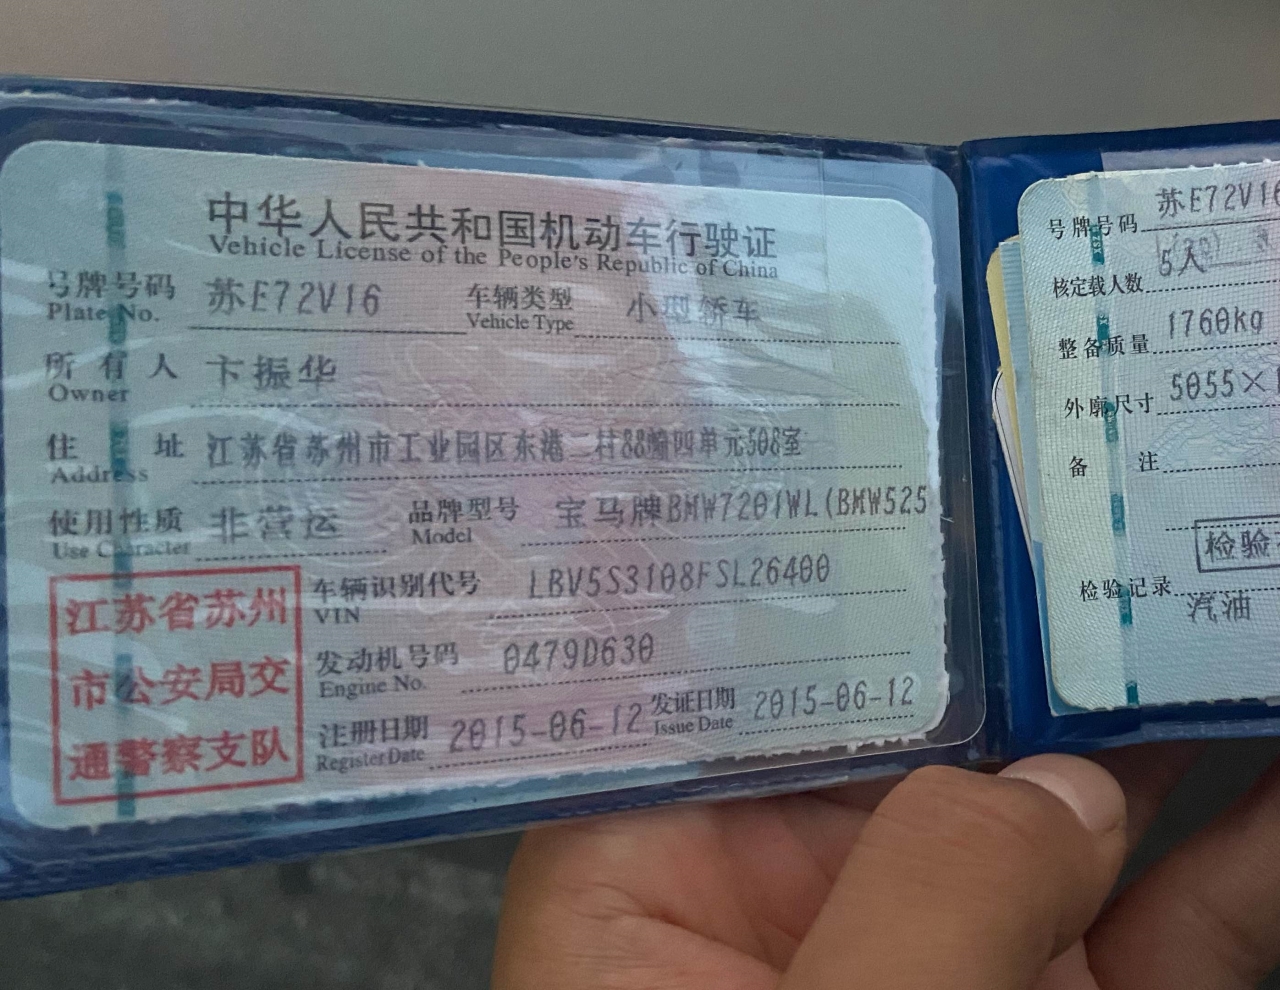 中华人民共和国机动车行驶证
Vehicle License of the People's Republic of China
号牌号码 苏E72V16 车辆类型 小型轿车
Plate No. Vehicle Type
所有人 卞振华
Owner
住址 江苏省苏州市工业园区东港二村88幢四单元508室
Address
使用性质 非营运 品牌型号 宝马牌BMW7201WL(BMW525
Use Character Model
江苏省苏州
市公安局交
通警察支队
车辆识别代号 LBV5S3108FSL26400
VIN
发动机号码 0479D630
Engine No.
注册日期 2015-06-12 发证日期 2015-06-12
Register Date Issue Date
号牌号码 苏E72V16
核定载人数 5人
整备质量 1760kg
外廓尺寸 5055×
备注
检验
检验记录
汽油